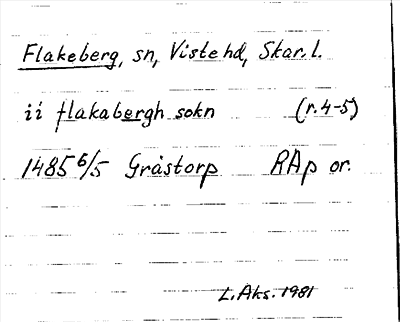 Flakeberg, sn, Viste hd, Skar. l.
ii flakabergh sokn (r. 4-5)
1485 6/5 Gråstorp RAp or.
L. Aks. 1981